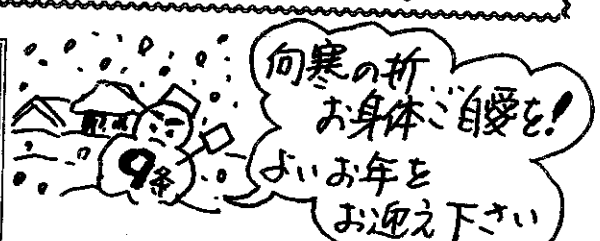 向寒の折
お身体ご自愛を!
よいお年を
お迎え下さい
9条